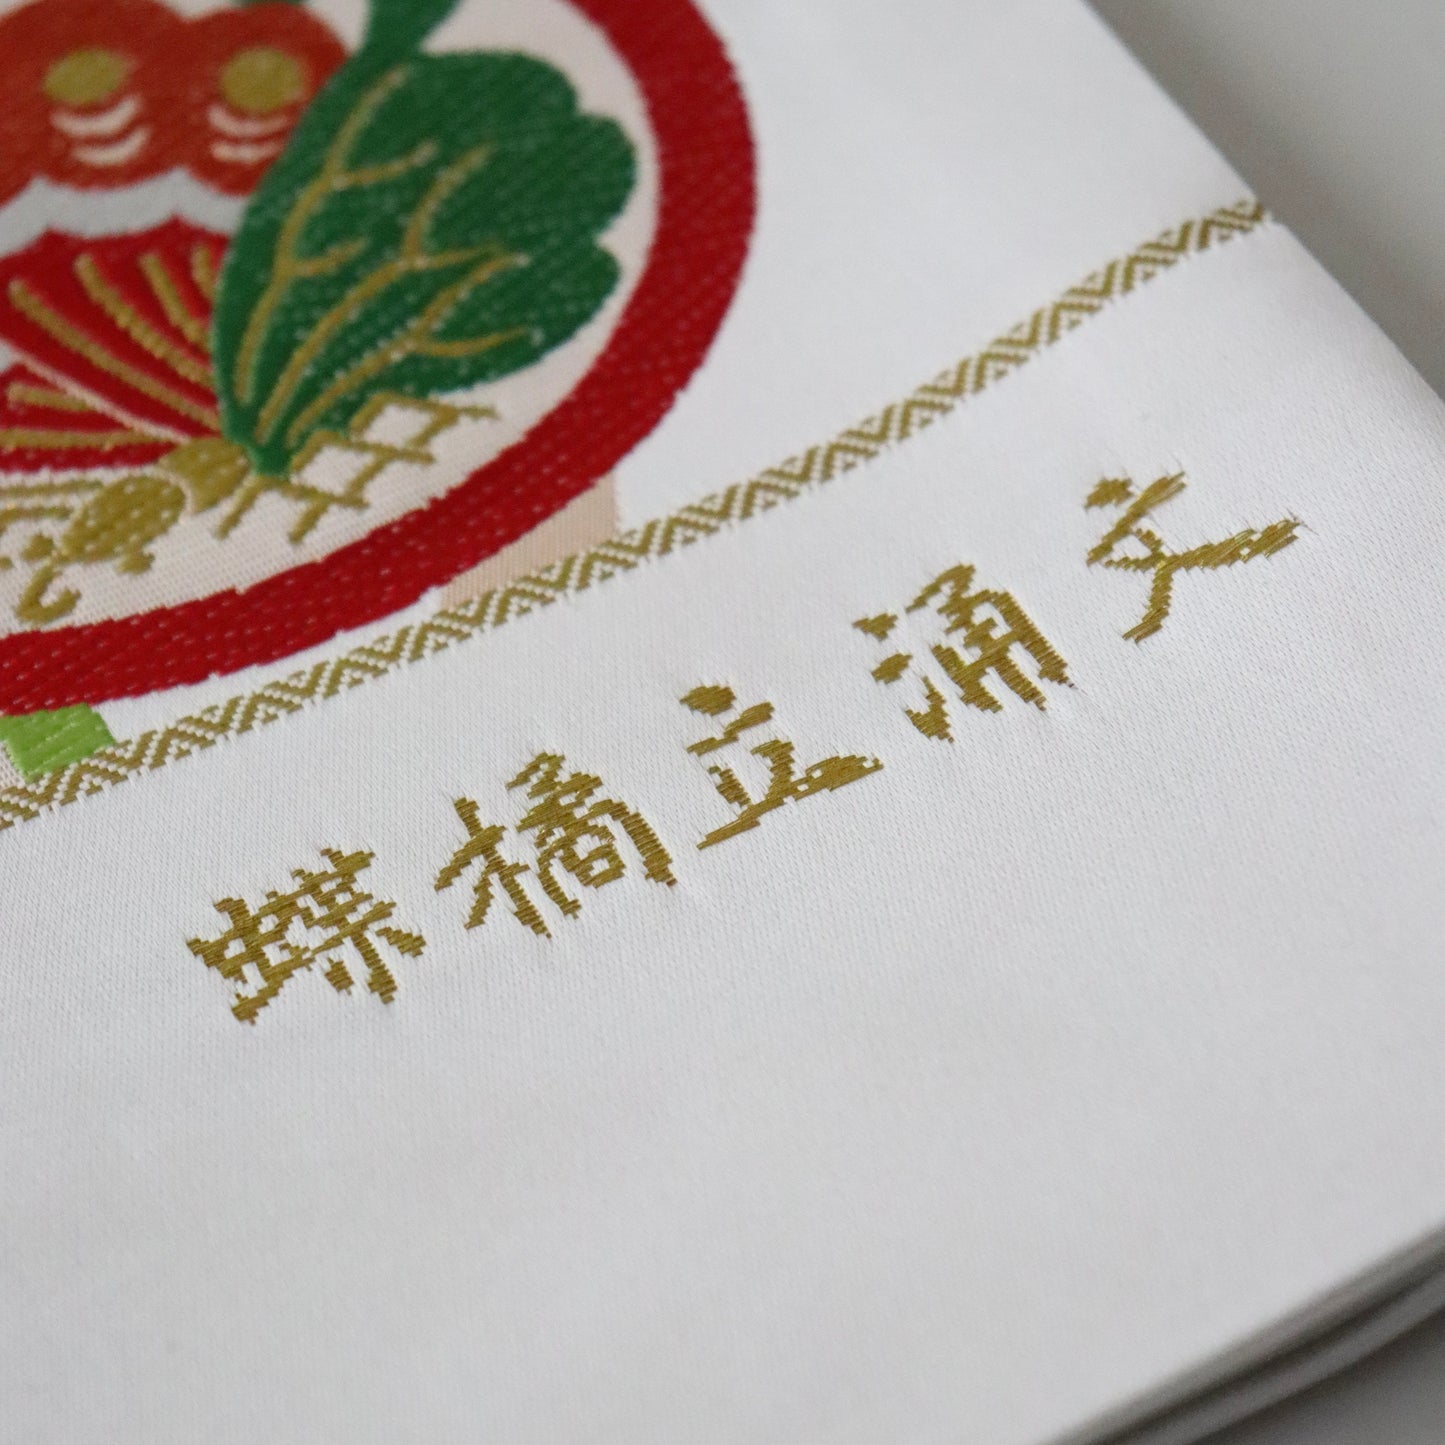 蝶橘立涌文